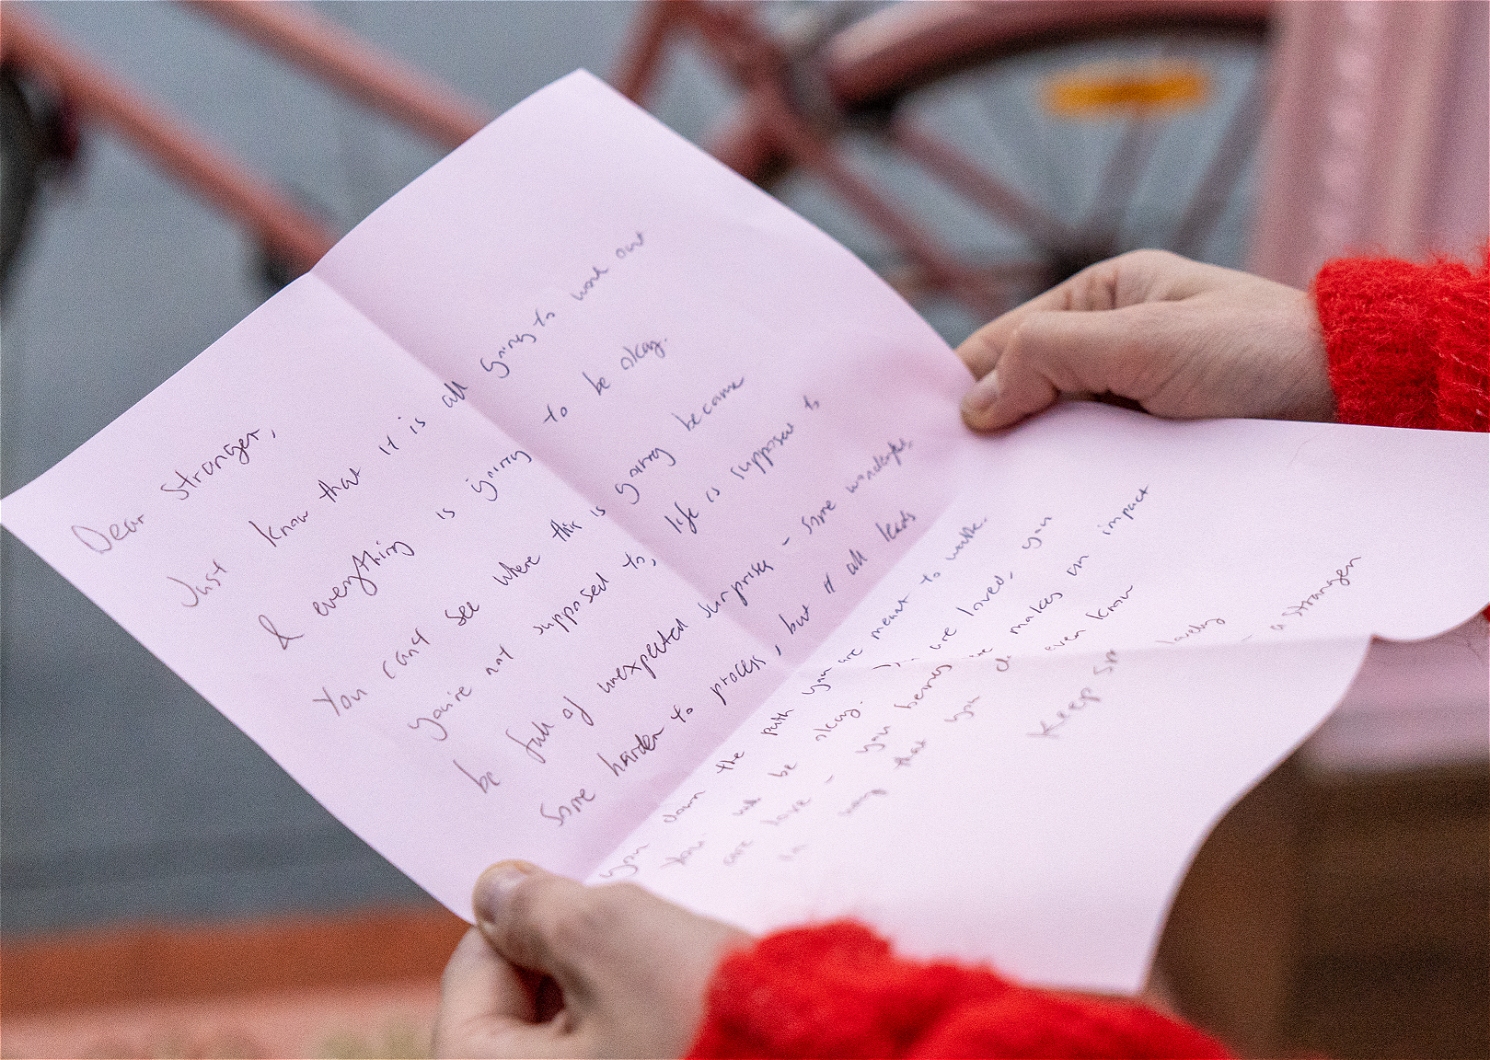 Dear Stranger,
Just know that it is all going to work out
& everything is going to be okay.
You can't see where this is going became
you're not supposed to, life is supposed to
be full of unexpected surprises - some wonderful,
some harder to process, but it all leads
you down the path you are meant to walk.
You will be okay. You are loved, you
are love - you being here makes an impact
in way that you even know
Keep smiling
- a stranger